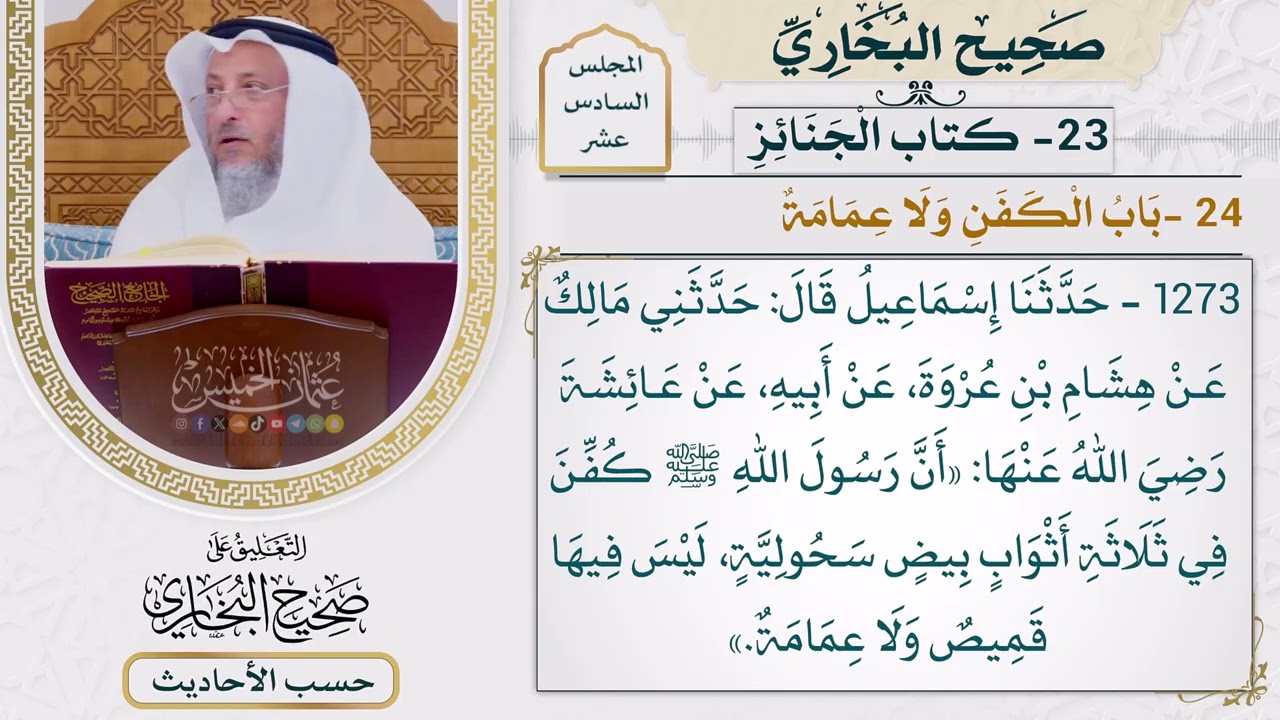 صَحِيح البُخَارِيِّ
المجلس
السادس
عشر
23- كتاب الْجَنَائِزِ
24 -بَابُ الْكَفَنِ وَلَا عِمَامَةٌ
1273 - حَدَّثَنَا إِسْمَاعِيلُ قَالَ: حَدَّثَنِي مَالِكٌ
عَنْ هِشَامِ بْنِ عُرْوَةَ، عَنْ أَبِيهِ، عَنْ عَائِشَةَ
رَضِيَ اللهُ عَنْهَا: «أَنَّ رَسُولَ اللهِ ﷺ كُفِّنَ
فِي ثَلَاثَةِ أَثْوَابٍ بِيضٍ سَحُولِيَّةٍ، لَيْسَ فِيهَا
قَمِيصٌ وَلَا عِمَامَةٌ.»
الجامع الصحيح
عثمان الخميس
التَّعْلِيقُ عَلَى
صَحِيح البُخَارِي
حسب الأحاديث